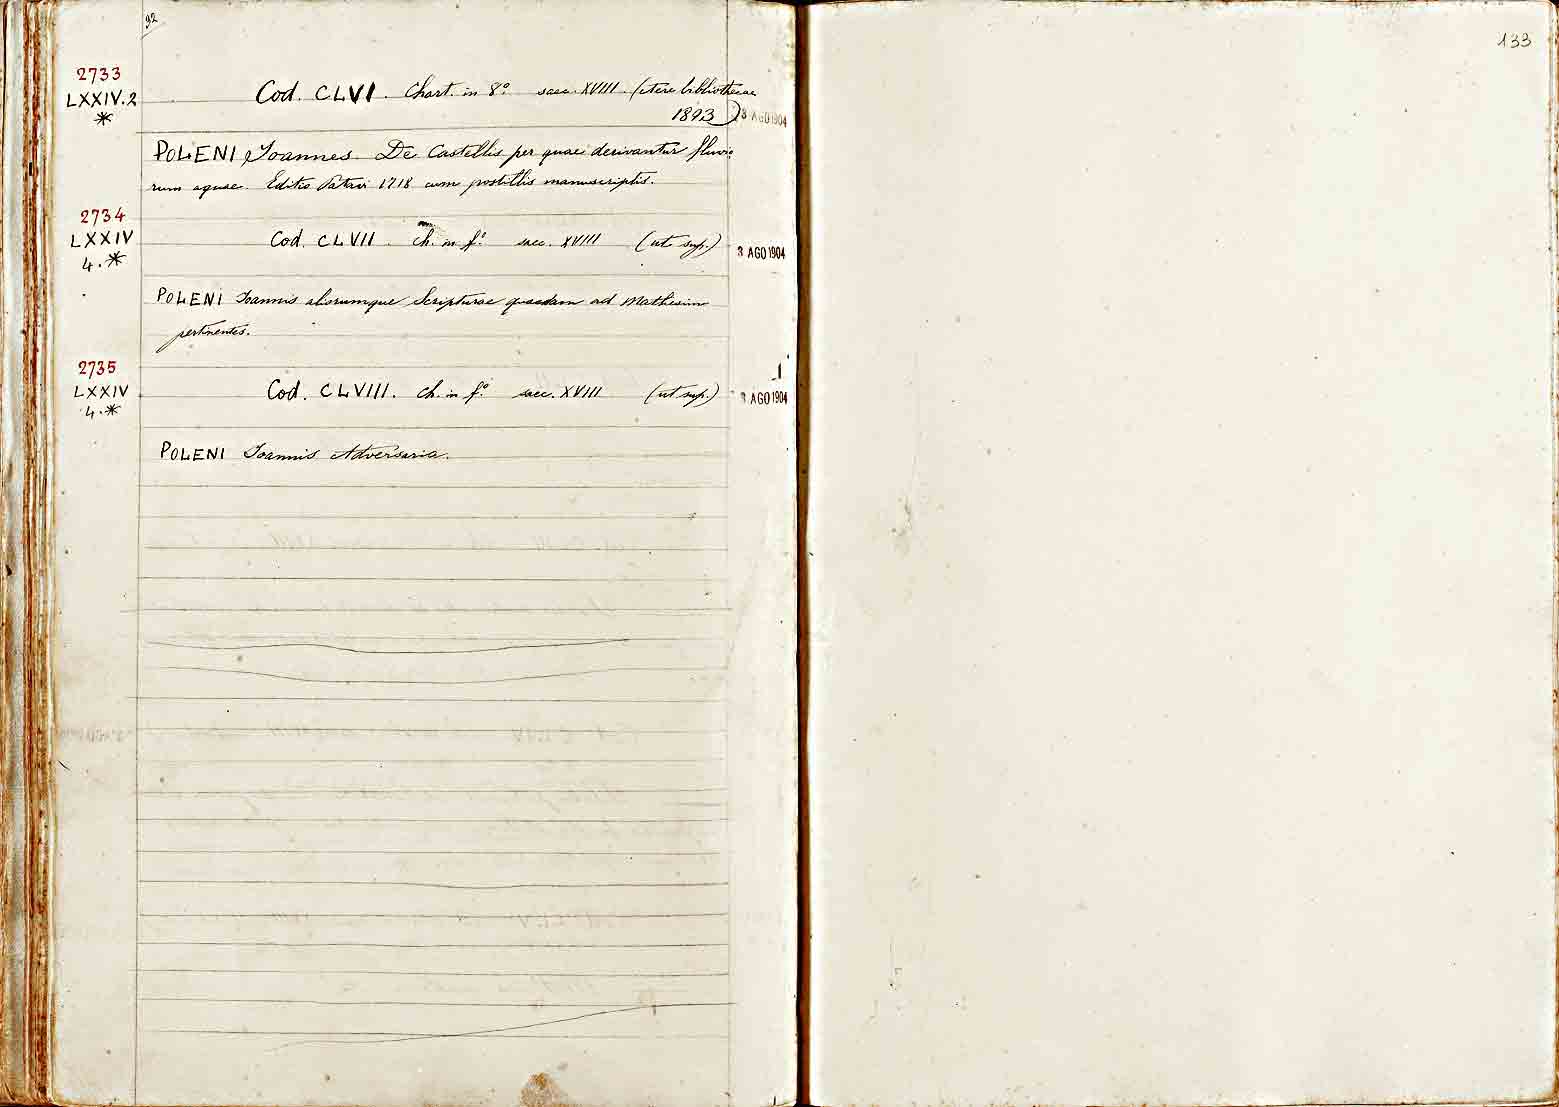 92
2733
LXXIV.2
*
Cod. CLVI. Chart. in 8º. saec. XVIII. (Aere bibliothecae
1893) 3 AGO 1904
POLENI Joannes. De Castellis per quae derivantur fluvio
rum aquae. Editio Patavi 1718 cum postillis manuscriptis.
2734
LXXIV
4.*
Cod. CLVII. ch. in fº. saec. XVIII (ut sup.) 3 AGO 1904
POLENI Joannis aliorumque Scripturae quaedam ad Mathesim
pertinentes.
2735
LXXIV
4.*
Cod. CLVIII. ch. in fº. saec. XVIII (ut sup.) 3 AGO 1904
POLENI Joannis Adversaria.
133